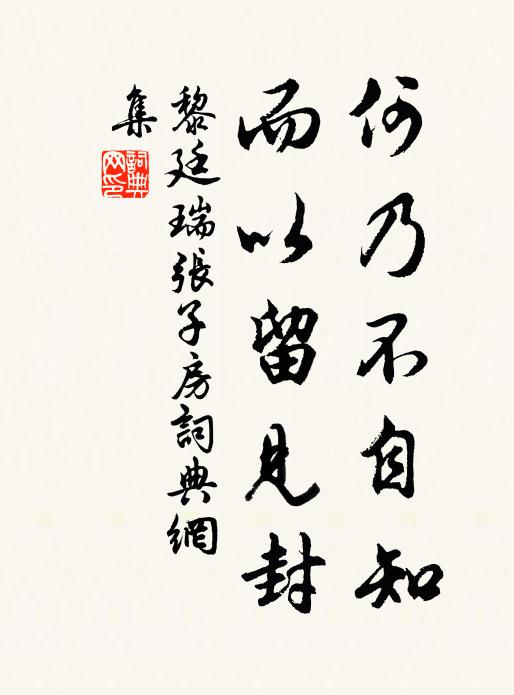 何乃不自知
而以留見封
黎廷瑞張子房詞典網
集
詞典網印